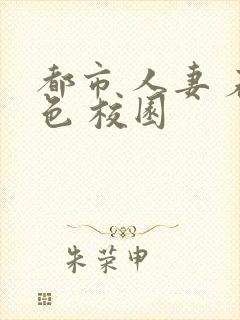 都市人妻
色校园
朱荣申